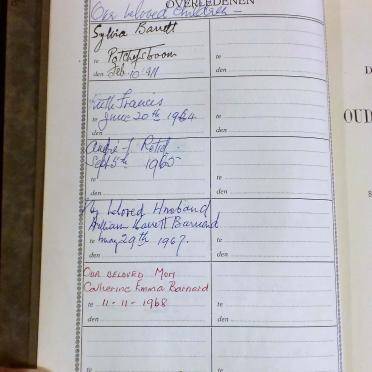 OVERLEDENEN
Our beloved Children —
Sylvia Barrett
te Potchefstroom
den Feb. 10
te
den
Ruth Francis
te June 20th 1964
den
te
den
Sept 5th 1965
te
den
te
den
My beloved Husband
William Barrett Barnard
te May 29th 1967.
den
te
den
OUR BELOVED MOM
Catherine Emma Barnard
te 11-11-1968
den
te
den
te
den
te
den
D
OUD